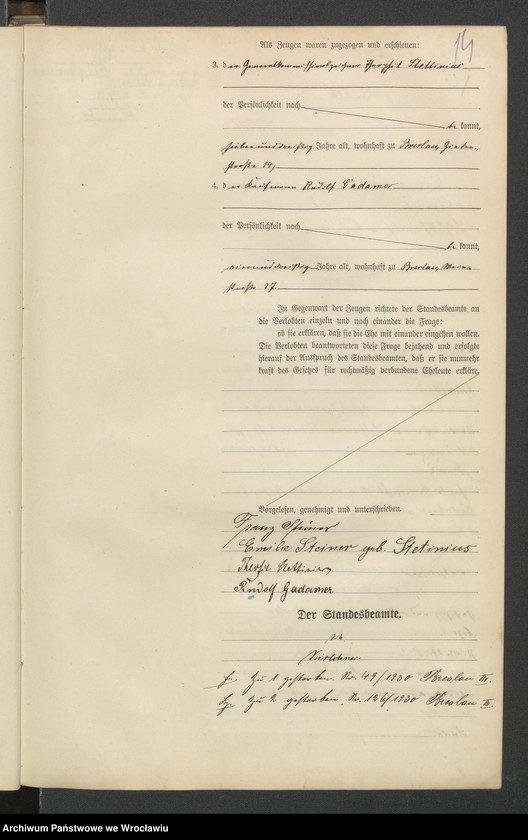 Als Zeugen waren zugezogen und erschienen:
3. der Generalkommissionszeichner Theophil Stettinius
der Persönlichkeit nach
be kannt,
siebenunddreißig Jahre alt, wohnhaft zu Breslau,
straße 14,
4. der Kaufmann Rudolf Gadamer
der Persönlichkeit nach
be kannt,
einunddreißig Jahre alt, wohnhaft zu Breslau,
straße 37.
In Gegenwart der Zeugen richtete der Standesbeamte an
die Verlobten einzeln und nach einander die Frage:
ob sie erklären, daß sie die Ehe mit einander eingehen wollen.
Die Verlobten beantworteten diese Frage bejahend und erfolgte
hierauf der Ausspruch des Standesbeamten, daß er sie nunmehr
kraft des Gesetzes für rechtmäßig verbundene Eheleute erkläre.
Vorgelesen, genehmigt und unterschrieben.
Franz Steiner
Emilie Steiner geb. Stetinius
Theofil Stettinius
Rudolf Gadamer
Der Standesbeamte.
zu 1 gestorben Nr. 49/1930 Breslau III.
zu 2 gestorben Nr. 126/1930 Breslau II
Archiwum Państwowe we Wrocławiu